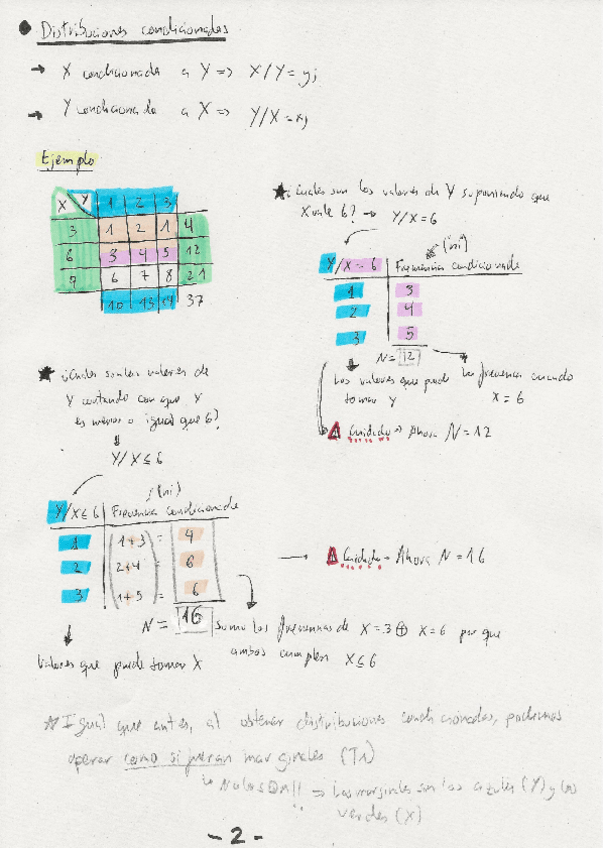 Distribuciones condicionadas
→ X condicionada a Y => X/Y = yj
→ Y condicionado a X => Y/X = xj
Ejemplo
X Y 1 2 3
3 1 2 1 4
6 3 4 5 12
9 6 7 8 21
10 13 14 37
★ ¿Cuáles son los valores de Y suponiendo que
X vale 6? → Y/X=6
(ni)
Y/X=6 Frecuencia condicionada
1 3
2 4
3 5
N = 12
Los valores que puede
tomar Y
La frecuencia cuando
X = 6
Cuidado → Ahora N = 12
★ ¿Cuáles son los valores de
Y contando con que X
es menor o igual que 6?
Y/X ≤ 6
(ni)
Y/X ≤ 6 Frecuencia condicionada
1 1+3 = 4
2 2+4 = 6
3 1+5 = 6
N = 16
→ Cuidado → Ahora N = 16
Sumo las frecuencias de X = 3 ⊕ X = 6 por que
ambos cumplen X ≤ 6
Valores que puede tomar X
☆ Igual que antes, al obtener distribuciones condicionadas, podemos
operar como si fueran marginales (T1)
→ Las marginales son las azules (Y) y las
verdes (X)
- 2 -